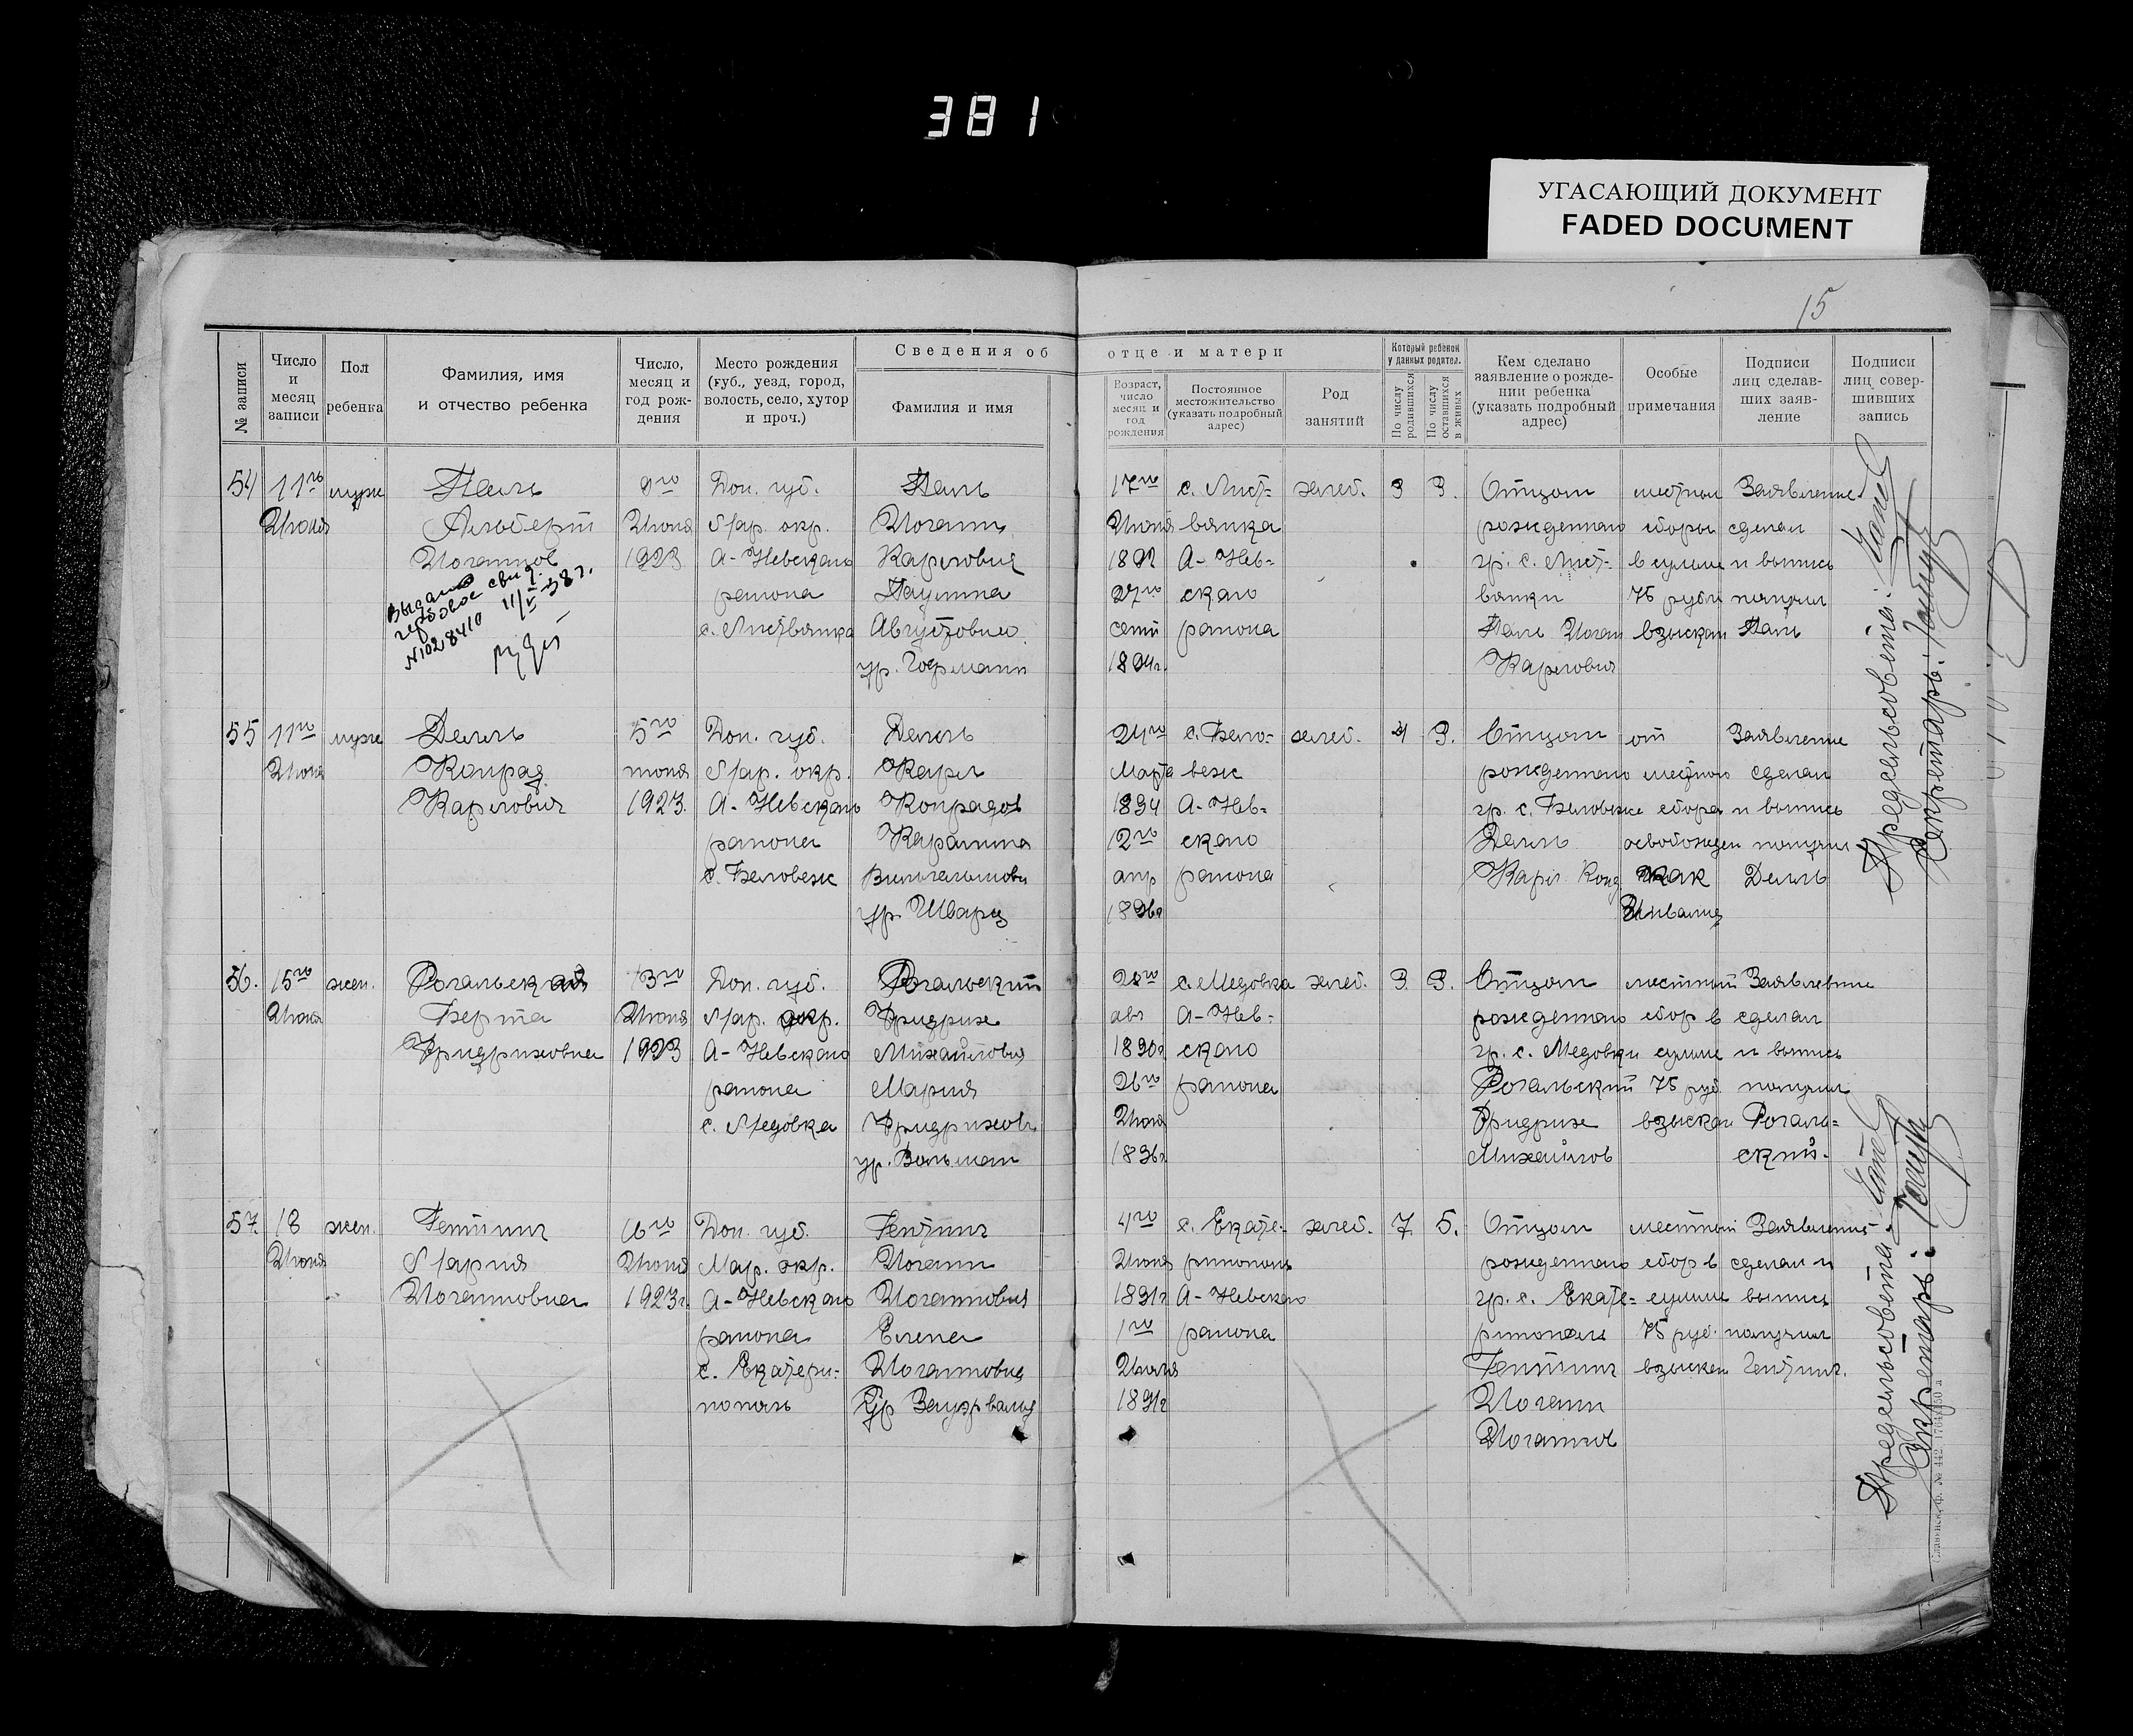 381
УГАСАЮЩИЙ ДОКУМЕНТ
FADED DOCUMENT
15
Сведения об отце и матери
№ записи
Число и месяц записи
Пол ребенка
Фамилия, имя и отчество ребенка
Число, месяц и год рождения
Место рождения (губ., уезд, город, волость, село, хутор и проч.)
Фамилия и имя
Возраст, число месяц и год рождения
Постоянное местожительство (указать подробный адрес)
Род занятий
Который ребенок у данных родител.
По числу родившихся
По числу оставшихся в живых
Кем сделано заявление о рождении ребенка (указать подробный адрес)
Особые примечания
Подписи лиц сделавших заявление
Подписи лиц совершивших запись
54
11го
Июня
муж
Паль
Альберт
Иоганнов
Выдано
гербовое свид.
N1028410 11/V-38г.
9го
Июня
1923
Дон. губ.
Мар. окр.
А-Невского
района
с. Листвянка
Паль
Иоганн
Карлович
Паулина
Августовна
ур. Гофманн
17го
Июня
27го
сент
с. Лист-
вянка
А-Нев-
ского
района
хлеб.
3
3.
Отцом
рожденного
гр. с. Лист-
вянки
Паль Иоган
Карлович
местный
сборы
в сумме
75 рубл
взыскан
Заявление
сделал
и выпись
получил
Паль
55
11го
Июня
муж
Делль
Конрад
Карлович
5го
июня
1923.
Дон. губ.
Мар. окр.
А-Невского
района
с. Беловеж
Делль
Карл
Конрадов
Каролина
Вильгельмовн
ур. Шварц
24го
Марта
1894
12го
апр
1896г
с. Бело-
веж
А-Нев-
ского
района
хлеб.
4
3.
Отцом
рожденного
гр. с. Беловеже
Делль
Карл Конд
от
местного
сбора
освобожден
как
Инвалид
Заявление
сделал
и выпись
получил
Делль
56.
15го
Июня
жен.
Рогальская
Берта
Фридриховна
13го
Июня
1923
Дон. губ.
Мар. окр.
А-Невского
района
с. Медовка
Рогальский
Фридрих
Михайлович
Мария
Фридрихов
ур. Вольман
28го
авг
1890г
26го
Июня
1896г
с. Медовка
А-Нев-
ского
района
хлеб.
3.
3.
Отцом
рожденного
гр. с. Медовки
Рогальский
Фридрих
Михайлов
местный
сбор в
сумме
75 руб
взыскан
Заявление
сделал
и выпись
получил
Рогаль-
ский.
57
18
Июня
жен.
Гентинг
Мария
Иоганновна
16го
Июня
1923г.
Дон. губ.
Мар. окр.
А-Невского
района
с. Екатери-
нополь
Гентинг
Иоганн
Иоганнович
Елена
Иоганновна
Ур Зауэрвальд
4го
Июня
1891г
1го
Июля
1891г
с. Екате-
ринополь
А-Невского
района
хлеб.
7.
5.
Отцом
рожденного
гр. с. Екате-
ринополь
Гентинг
Иоганн
Иоганнов
местный
сбор в
сумме
75 руб.
взыскан
Заявление
сделал и
выпись
получил
Гентинг.
Предсельсовета:
Секретарь:
Предсельсовета:
Секретарь: